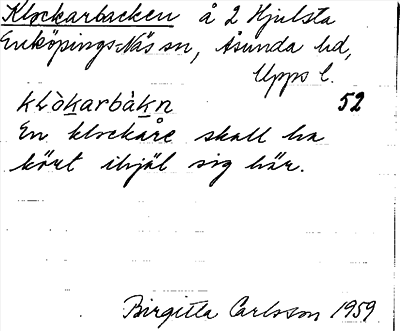 Klockarbacken å 2 Hjulsta
Enköpings-Näs sn, Åsunda hd,
Upps l.
klòkarbàkn 52
En klockare skall ha
kört ihjäl sig här.
Birgitta Carlsson 1959